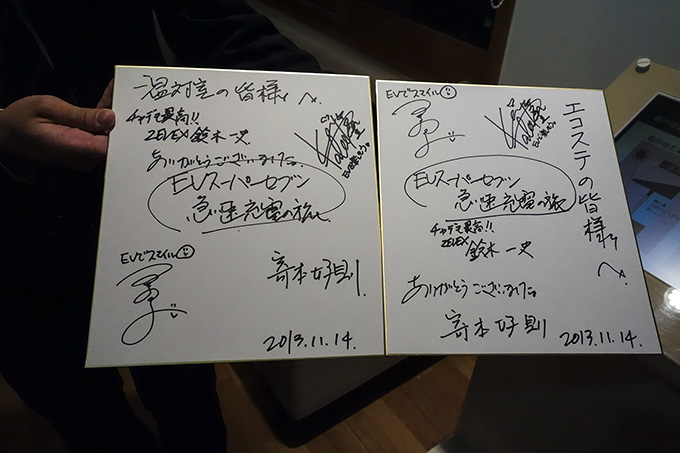 温対室の皆様へ。
チャデモ最高!!
ZEVEX 鈴木一史
ありがとうございました。
EVスーパーセブン
急速充電の旅
EVでスマイル
寄本好則
2013.11.14.
エコステの皆様へ。
EVでスマイル
EVスーパーセブン
急速充電の旅
チャデモ最高!!
ZEVEX 鈴木一史
ありがとうございました。
寄本好則
2013.11.14.